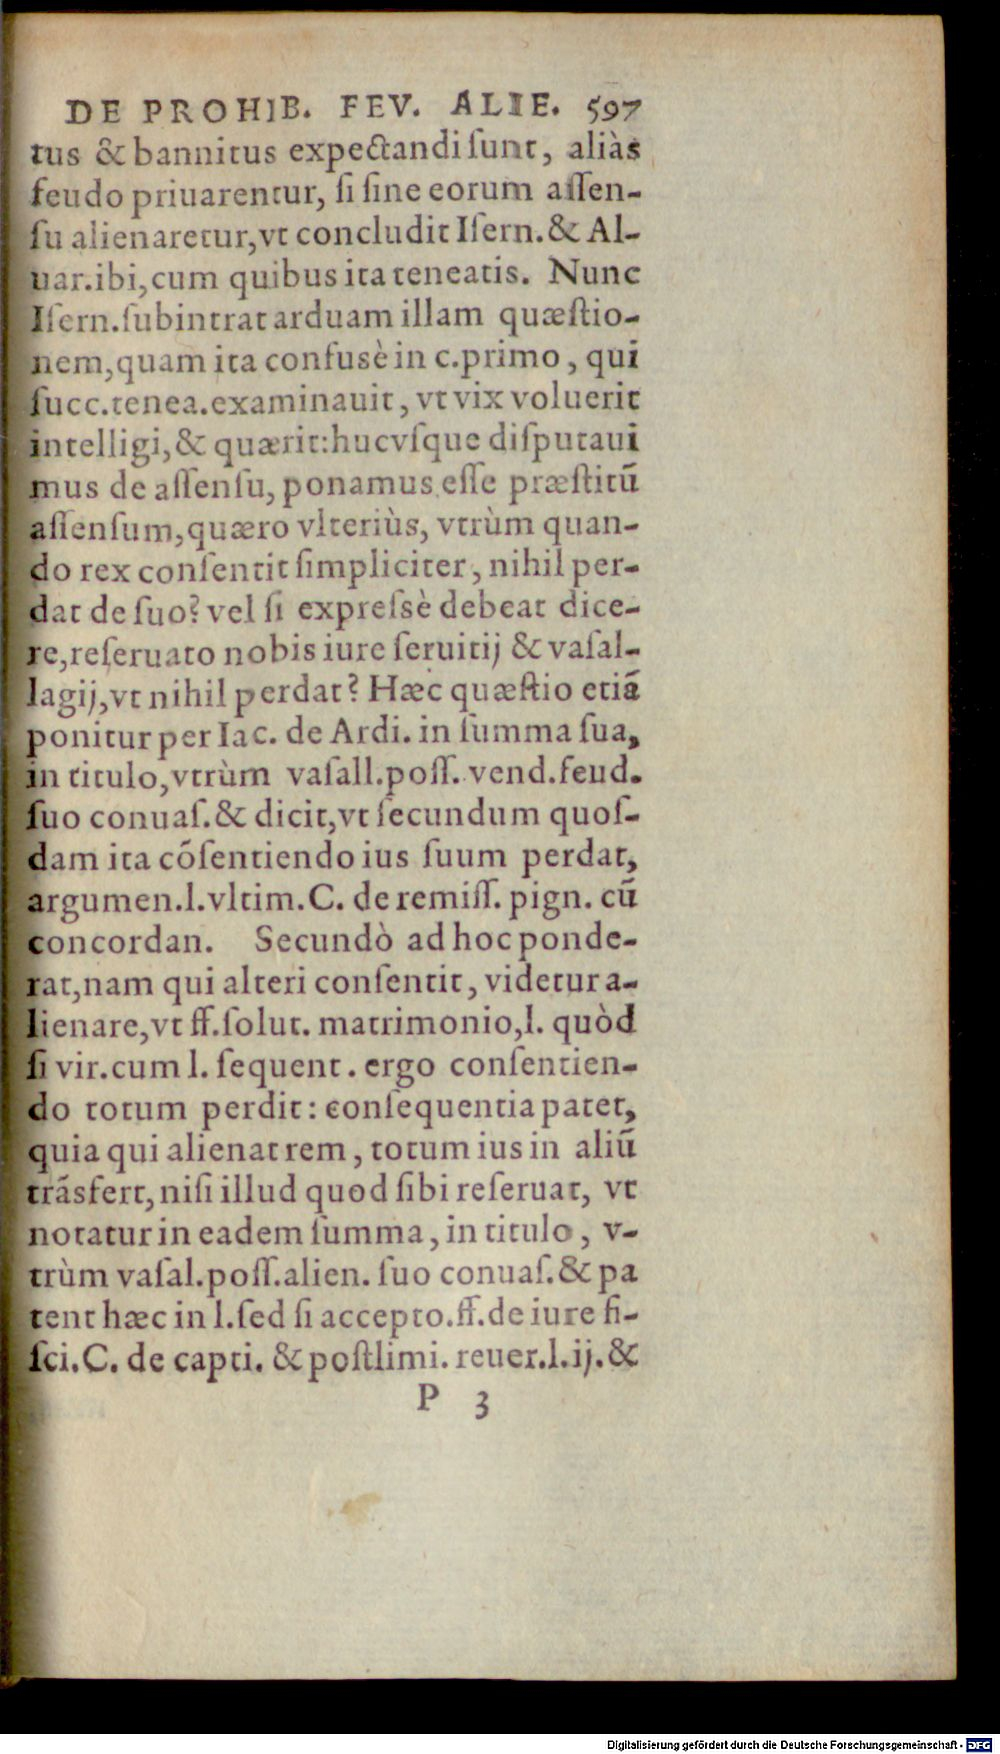 DE PROHIB. FEV. ALIE. 597
tus & bannitus expectandi ſunt, aliàs
feudo priuarentur, ſi ſine eorum aſſen-
ſu alienaretur,vt concludit Iſern.& Al-
uar.ibi,cum quibus ita teneatis. Nunc
Iſern.ſubintrat arduam illam quæſtio-
nem,quam ita confusè in c.primo, qui
ſucc.tenea.examinauit, vt vix voluerit
intelligi,& quærit:hucvſque diſputaui
mus de aſſenſu, ponamus eſſe præſtitū
aſſenſum,quæro vlteriùs, vtrùm quan-
do rex conſentit ſimpliciter, nihil per-
dat de ſuo? vel ſi expreſsè debeat dice-
re,reſeruato nobis iure ſeruitij & vaſal-
lagij,vt nihil perdat? Hæc quæſtio etiā
ponitur per Iac. de Ardi. in ſumma ſua,
in titulo,vtrùm vaſall.poſſ. vend.feud.
ſuo conuaſ.& dicit,vt ſecundum quoſ-
dam ita cōſentiendo ius ſuum perdat,
argumen.l.vltim.C. de remiſſ. pign. cū
concordan. Secundò ad hoc ponde-
rat,nam qui alteri conſentit, videtur a-
lienare,vt ff.ſolut. matrimonio,l. quòd
ſi vir.cum l. ſequent. ergo conſentien-
do totum perdit: conſequentia patet,
quia qui alienat rem, totum ius in aliū
trāsfert,niſi illud quod ſibi reſeruat, vt
notatur in eadem ſumma, in titulo, v-
trùm vaſal.poſſ.alien. ſuo conuaſ.& pa
tent hæc in l.ſed ſi accepto.ff.de iure fi-
ſci.C. de capti. & poſtlimi. reuer.l.ij.&
P 3
Digitalisierung gefördert durch die Deutsche Forschungsgemeinschaft - DFG